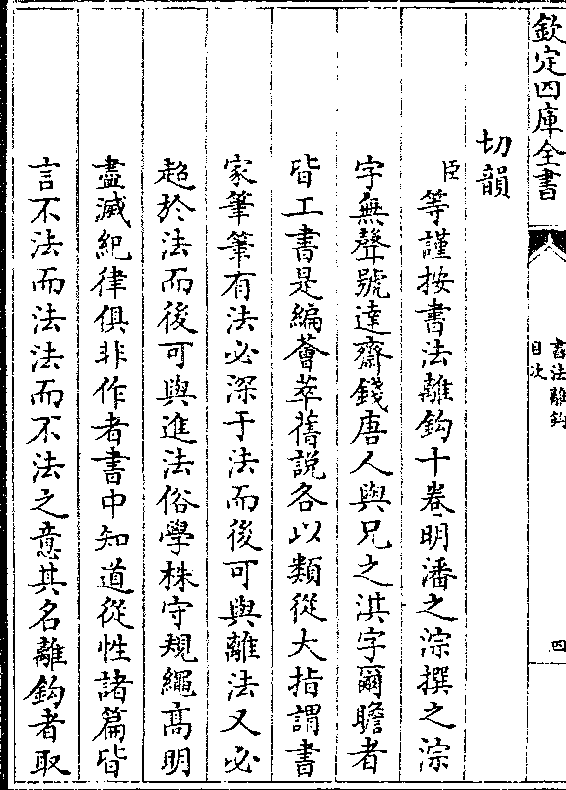 欽定四庫全書
書法離鈎
目次
四
切韻
臣等謹按書法離鈎十卷明潘之淙撰之淙
字無聲號達齋錢唐人與兄之淇字爾瞻者
皆工書是編薈萃舊説各以類從大指謂書
家筆筆有法必深于法而後可與離法又必
超於法而後可與進法俗學株守規繩高明
盡滅紀律俱非作者書中知道從性諸篇皆
言不法而法法而不法之意其名離鈎者取